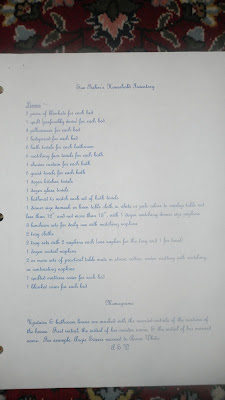 True Baker's Household Inventory
Linens -
3 pairs of blankets for each bed
1 quilt (preferably down) for each bed
4 pillowcases for each bed
1 bedspread for each bed
6 bath towels for each bathroom
6 matching face towels for each bath
1 shower curtain for each bath
6 guest towels for each bath
1 dozen kitchen towels
1 dozen glass towels
1 bathmat to match each set of bath towels
1 dinner size damask or linen table cloth in white or pale colors to overlap table not
less than 12" and not more than 18", with 1 dozen matching dinner size napkins
3 luncheon sets for daily use with matching napkins
2 tray cloths
2 tray sets with 2 napkins each (one napkin for the tray and 1 for toast)
1 dozen cocktail napkins
2 or more sets of practical table mats in straw, cotton, with matching
or contrasting napkins
1 quilted mattress cover for each bed
1 blanket cover for each bed
Monograms
Upstairs & bathroom linens are marked with the married initials of the mistress of
the house. First initial, the initial of her maiden name & the initial of her married
name. For example, Angie married to